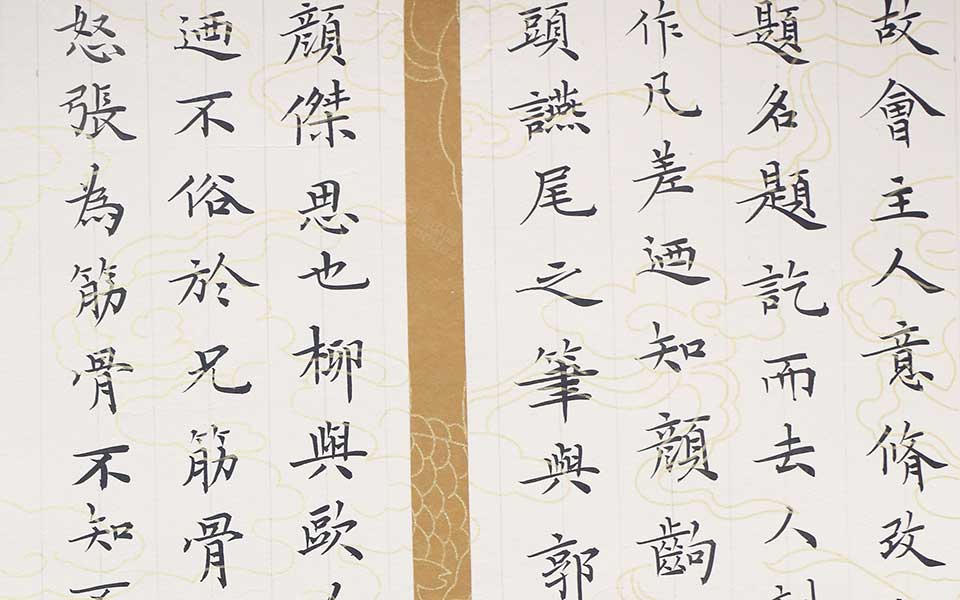 故會主人意脩改
題名題訖而去人刻
作凡差迺知顏齣
頭讌尾之筆與郭
顏傑思也柳與歐
迺不俗於兄筋骨
怒張為筋骨不知不